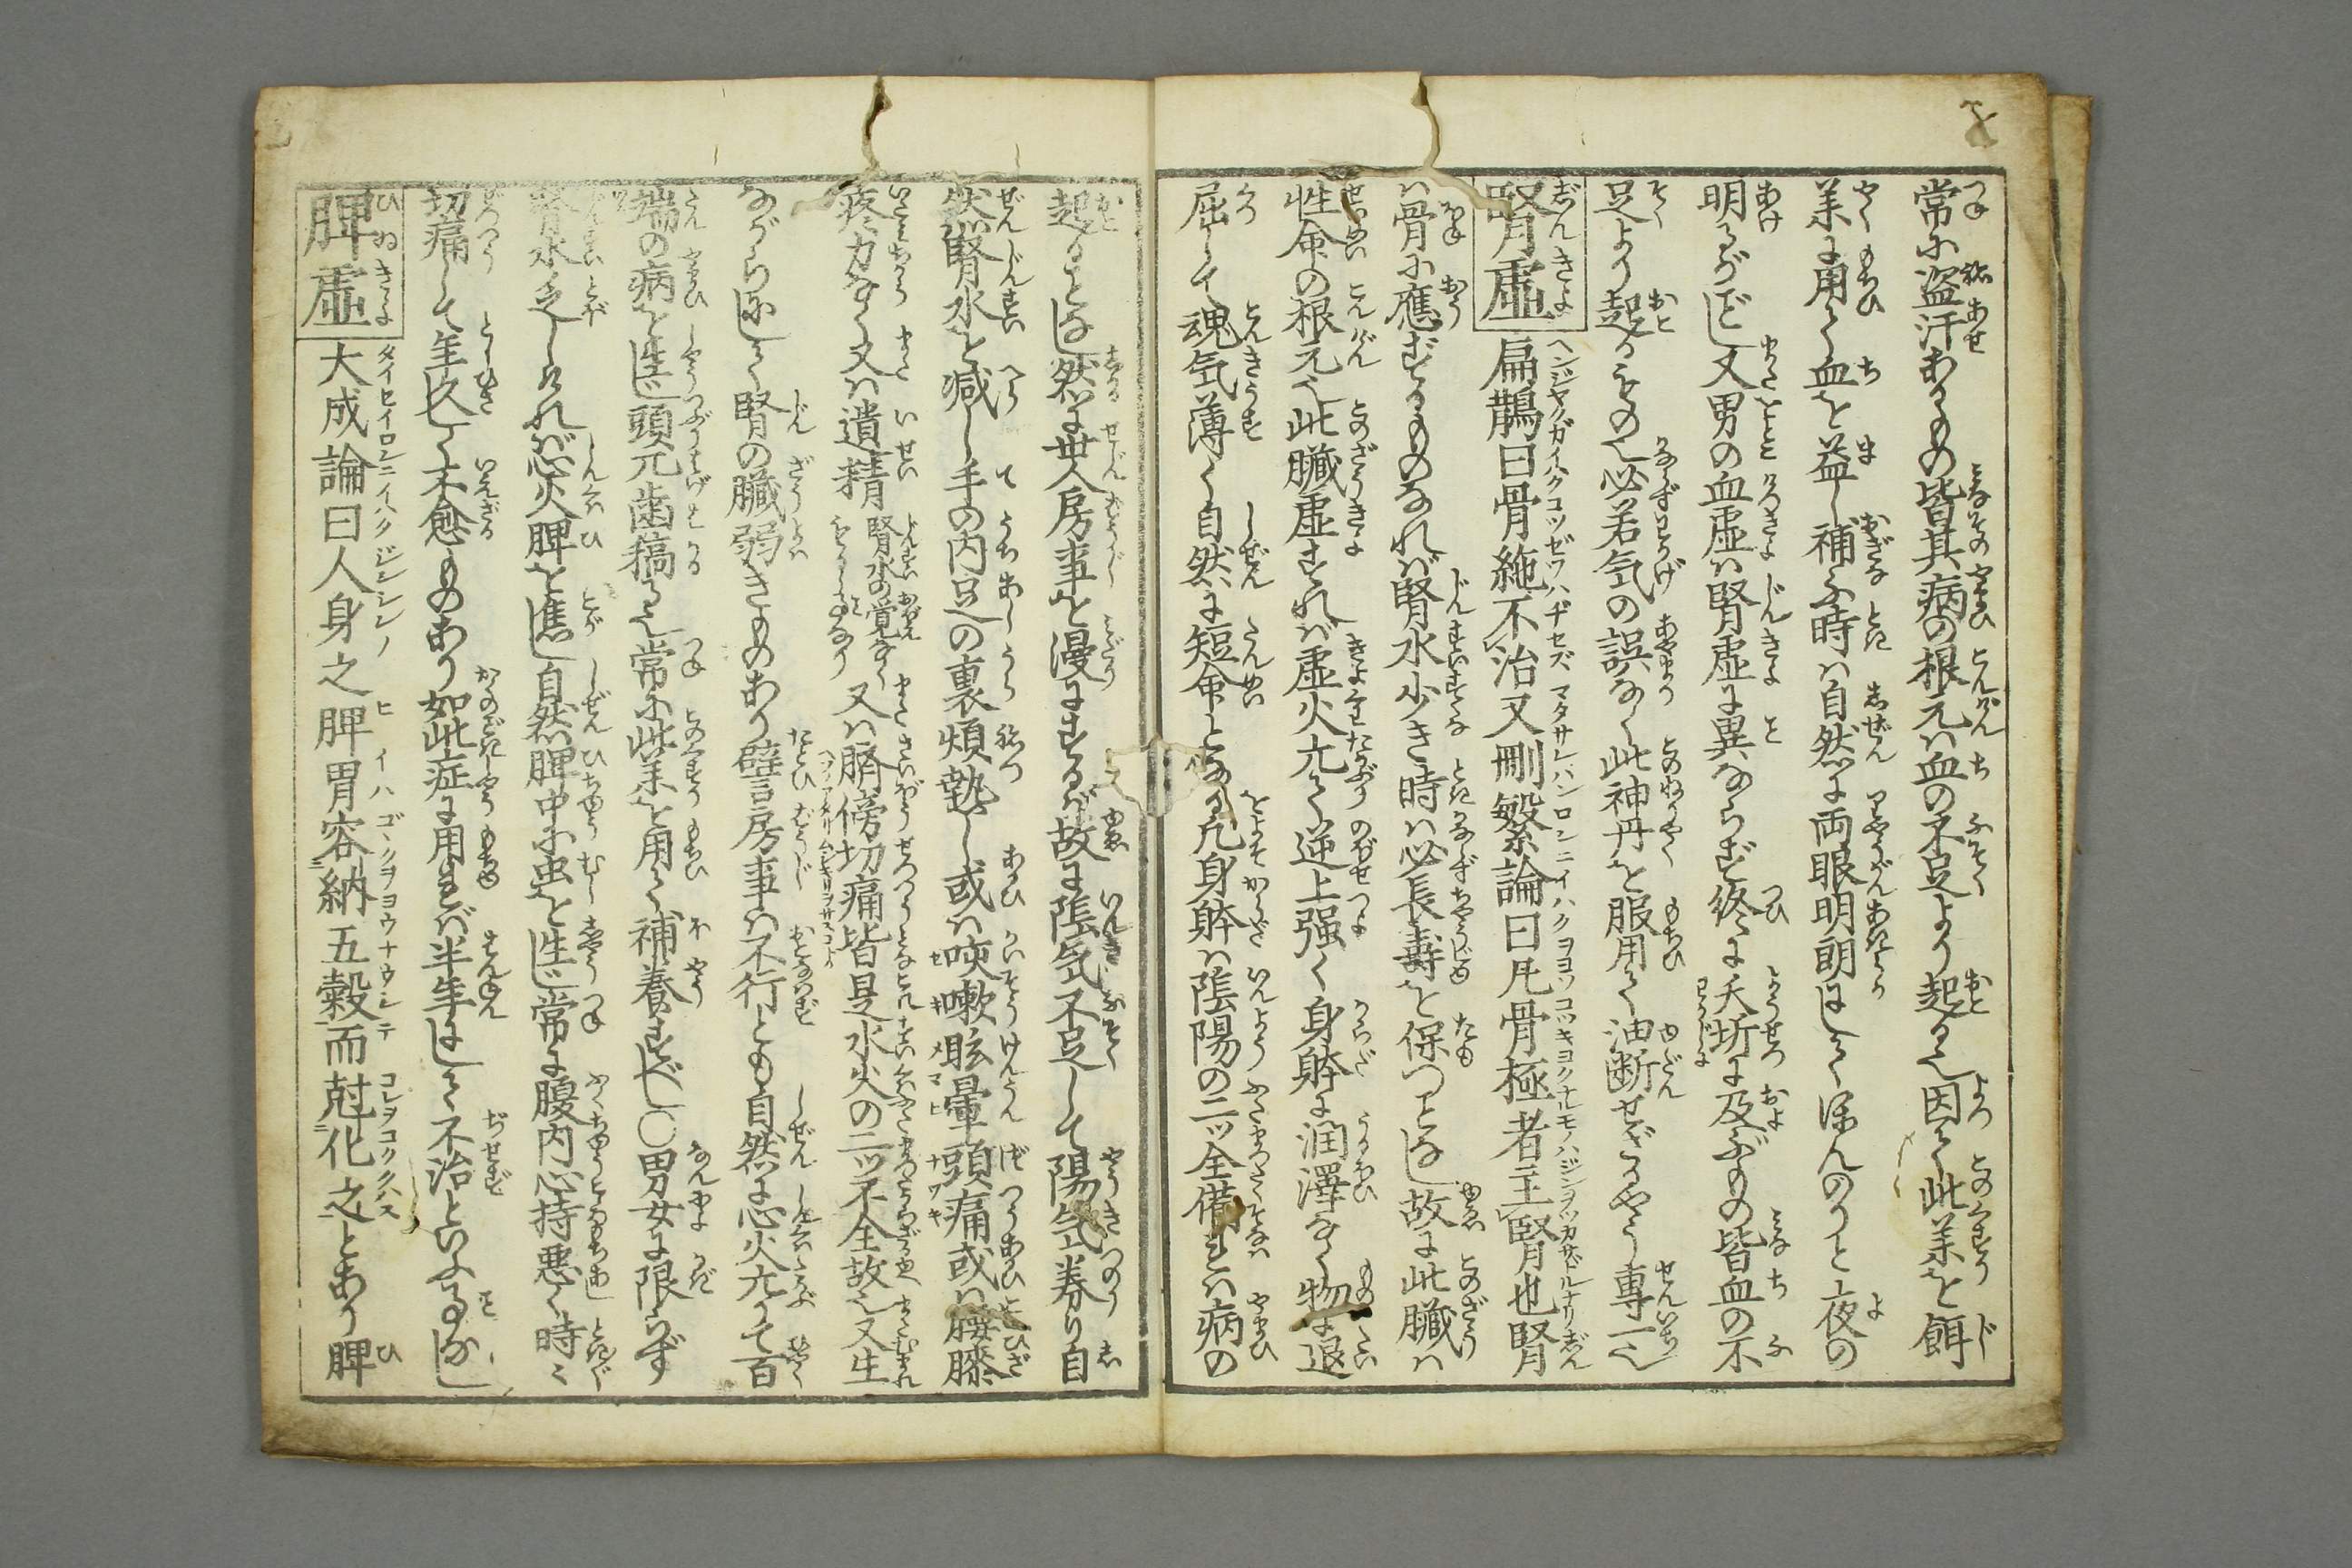 常に盗汗あるもの皆其病の根元ハ血の不足より起る也因て此薬を餌
薬に用て血を益し補ふ時ハ自然に両眼明朗にして ほんのりと夜の
明るがごとし又男の血虚ハ腎虚に異ならず終に夭折に及ぶもの皆血の不
足より起るもの也必若気の誤なく此神丹を服用て油断せざるやう専一也
腎虚 扁鵲曰骨絁不治又刪繁論曰凡骨極者主腎也腎
ハ骨に應ずるものなれバ腎水少き時ハ必長壽を保つことなし故に此臓ハ
性命の根元也此臓虚すれバ虚火亢て逆上強く身躰に潤澤なく物に退
屈して魂気薄く自然に短命となる凡身躰ハ陰陽の二ッ全備すれハ病の
起ることなし然に世人房事を漫にするが故に陰気不足して陽気券り自
然腎水を減し手の内足の裏煩熱し或ハ咳嗽眩暈頭痛或ハ腰膝
疼力なく又ハ遺精腎水の覚なくもるゝ事なり又ハ臍傍切痛皆是水火の二ッ不全故也又生
ながらにして腎の臓弱きものあり譬房事ハ不行とも自然に心火亢りて百
端の病を生じ頭兀歯稿る也常に此薬を用て補養すべし〇男女に限らず
腎水乏しけれバ心火脾を憔し自然脾中に虫を生じ常に腹内心持悪く時々
切痛して年久して不愈ものあり如此症に用れバ半年にして不治といふ事なし
脾虚 大成論曰人身之脾胃容納五穀而尅化之とあり脾